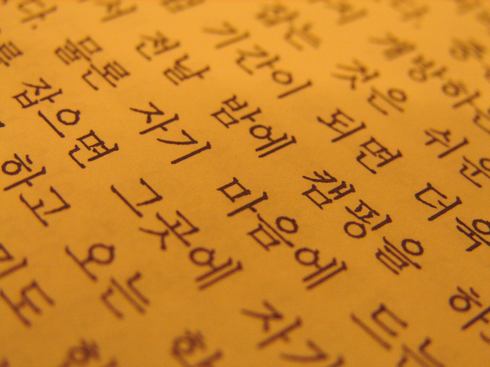 개방하는
잡는 것은 쉬운
기간이 되면 더욱
전날 밤에 캠핑을 하
물론 자기 마음에 드는
잡으면 그곳에 자기
하고 오는
도